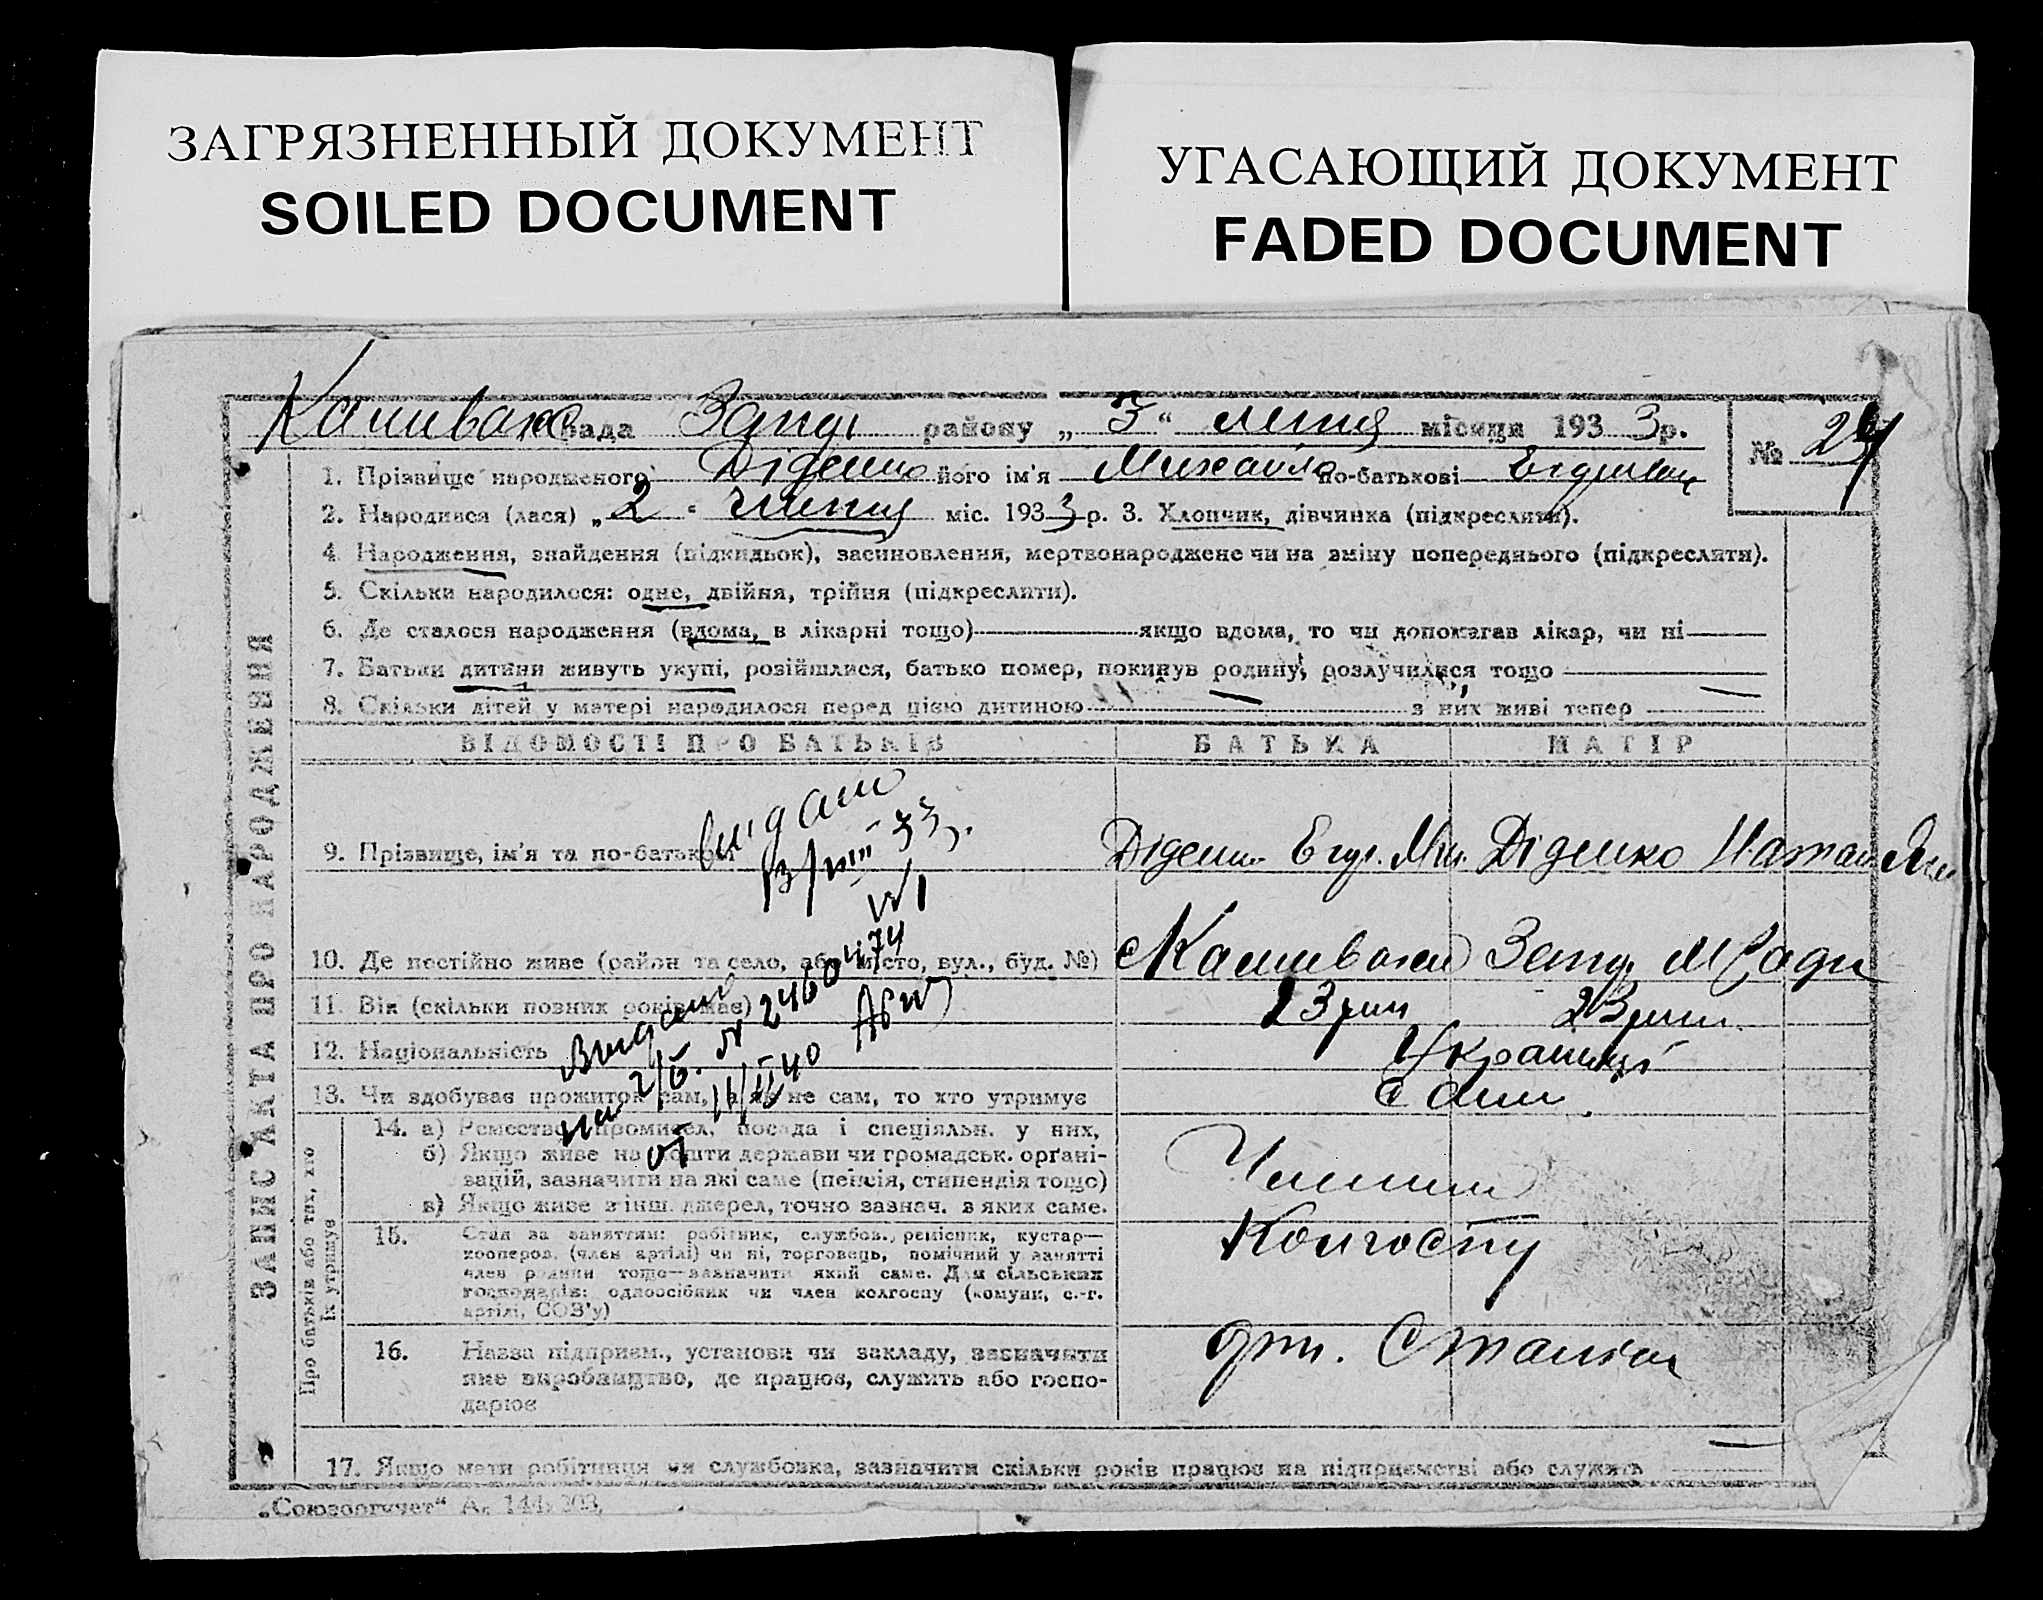 ЗАГРЯЗНЕННЫЙ ДОКУМЕНТ
SOILED DOCUMENT
УГАСАЮЩИЙ ДОКУМЕНТ
FADED DOCUMENT
рада району „ 3 “ липня місяця 193 3 р.
№ 24
1. Прізвище народженого Діденко його ім'я Михайло по-батькові
2. Народився (лася) „ 2 “ липня міс. 193 3 р. 3. Хлопчик, дівчинка (підкреслити).
4. Народження, знайдення (підкидьок), засиновлення, мертвонароджене чи на зміну попереднього (підкреслити).
5. Скільки народилося: одне, двійня, трійня (підкреслити).
6. Де сталося народження (вдома, в лікарні тощо) якщо вдома, то чи допомагав лікар, чи ні
7. Батьки дитини живуть укупі, розійшлися, батько помер, покинув родину, розлучилися тощо —
8. Скільки дітей у матері народилося перед цією дитиною — з них живі тепер —
ВІДОМОСТІ ПРО БАТЬКІВ БАТЬКА МАТІР
9. Прізвище, ім'я та по-батькові Діденко Натал
10. Де постійно живе (район та село, або місто, вул., буд. №)
11. Вік (скільки повних років має) 23 23
12. Національність Українці
13. Чи здобуває прожиток сам, а як не сам, то хто утримує сами
14. а) Ремество, промисел, посада і спеціяльн. у них,
б) Якщо живе на кошти держави чи громадськ. орґані-
зацій, зазначити на які саме (пенсія, стипендія тощо)
в) Якщо живе з інш. джерел, точно зазнач. з яких саме.
15. Стан за заняттям: робітник, службов., ремісник, кустар—
кооперов. (член артілі) чи ні, торговець, помічний у занятті
член родини тощо—зазначити який саме. Для сільських
господарів: одноосібник чи член колгоспу (комуни, с.-г.
артілі, СОЗ'у)
Колгоспу
16. Назва підприєм., установи чи закладу, зазначити
яке виробництво, де працює, служить або госпо-
дарює
17. Якщо мати робітниця чи службовка, зазначити скільки років працює на підприємстві або служить —
ЗАПИС АКТА ПРО НАРОДЖЕННЯ
Про батьків або тих, хто
їх утримує
видано
№ 2460474
от 11/II 40
„Союзоргучет“